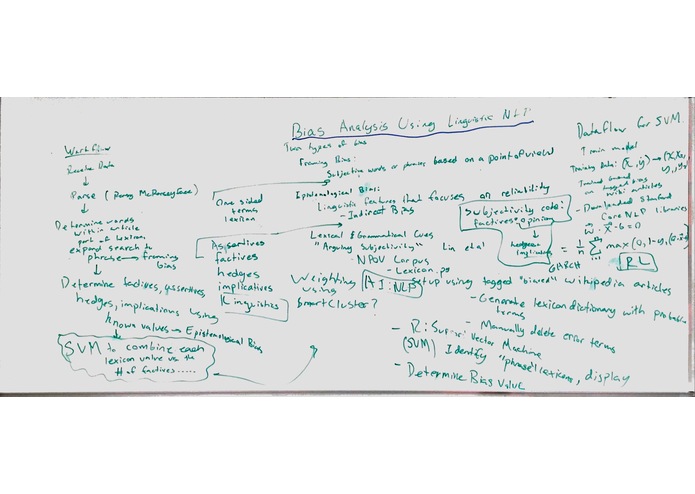 Bias Analysis Using Linguistic NLP
Workflow
Receive Data
Parse (Parsey McParseyface)
Determine words
within article
part of lexicon
expand search to
phrase → framing
bias
Determine factives, assertives
hedges, implications using
known values → Epistemological Bias
SVM to combine each
lexicon value vs the
# of factives.....
One sided
terms
lexicon
Assertives
factives
hedges
implicatives
Linguistics
Two types of bias
Framing Bias:
Subjective words or phrases based on a point of view
Epistemological Bias:
Linguistic features that focuses on reliability
- Indirect Bias
Lexical & Grammatical Cues
"Arguing Subjectivity" Lin et al
- NPOV Corpus
- Lexicon.py
Subjectivity code:
factives + opinion
Weighting
using
SmartCluster?
AI: NLP
Setup using tagged "biased" wikipedia articles
- Generate lexicon dictionary with
terms
- Manually delete error terms
- R: Support Vector Machine
(SVM) Identify "phrase" lexicons, display
- Determine Bias Value
Dataflow for SVM
Train model
Training data:
on wiki articles
- Downloaded Stanford
Core NLP libraries
GARCH
RL